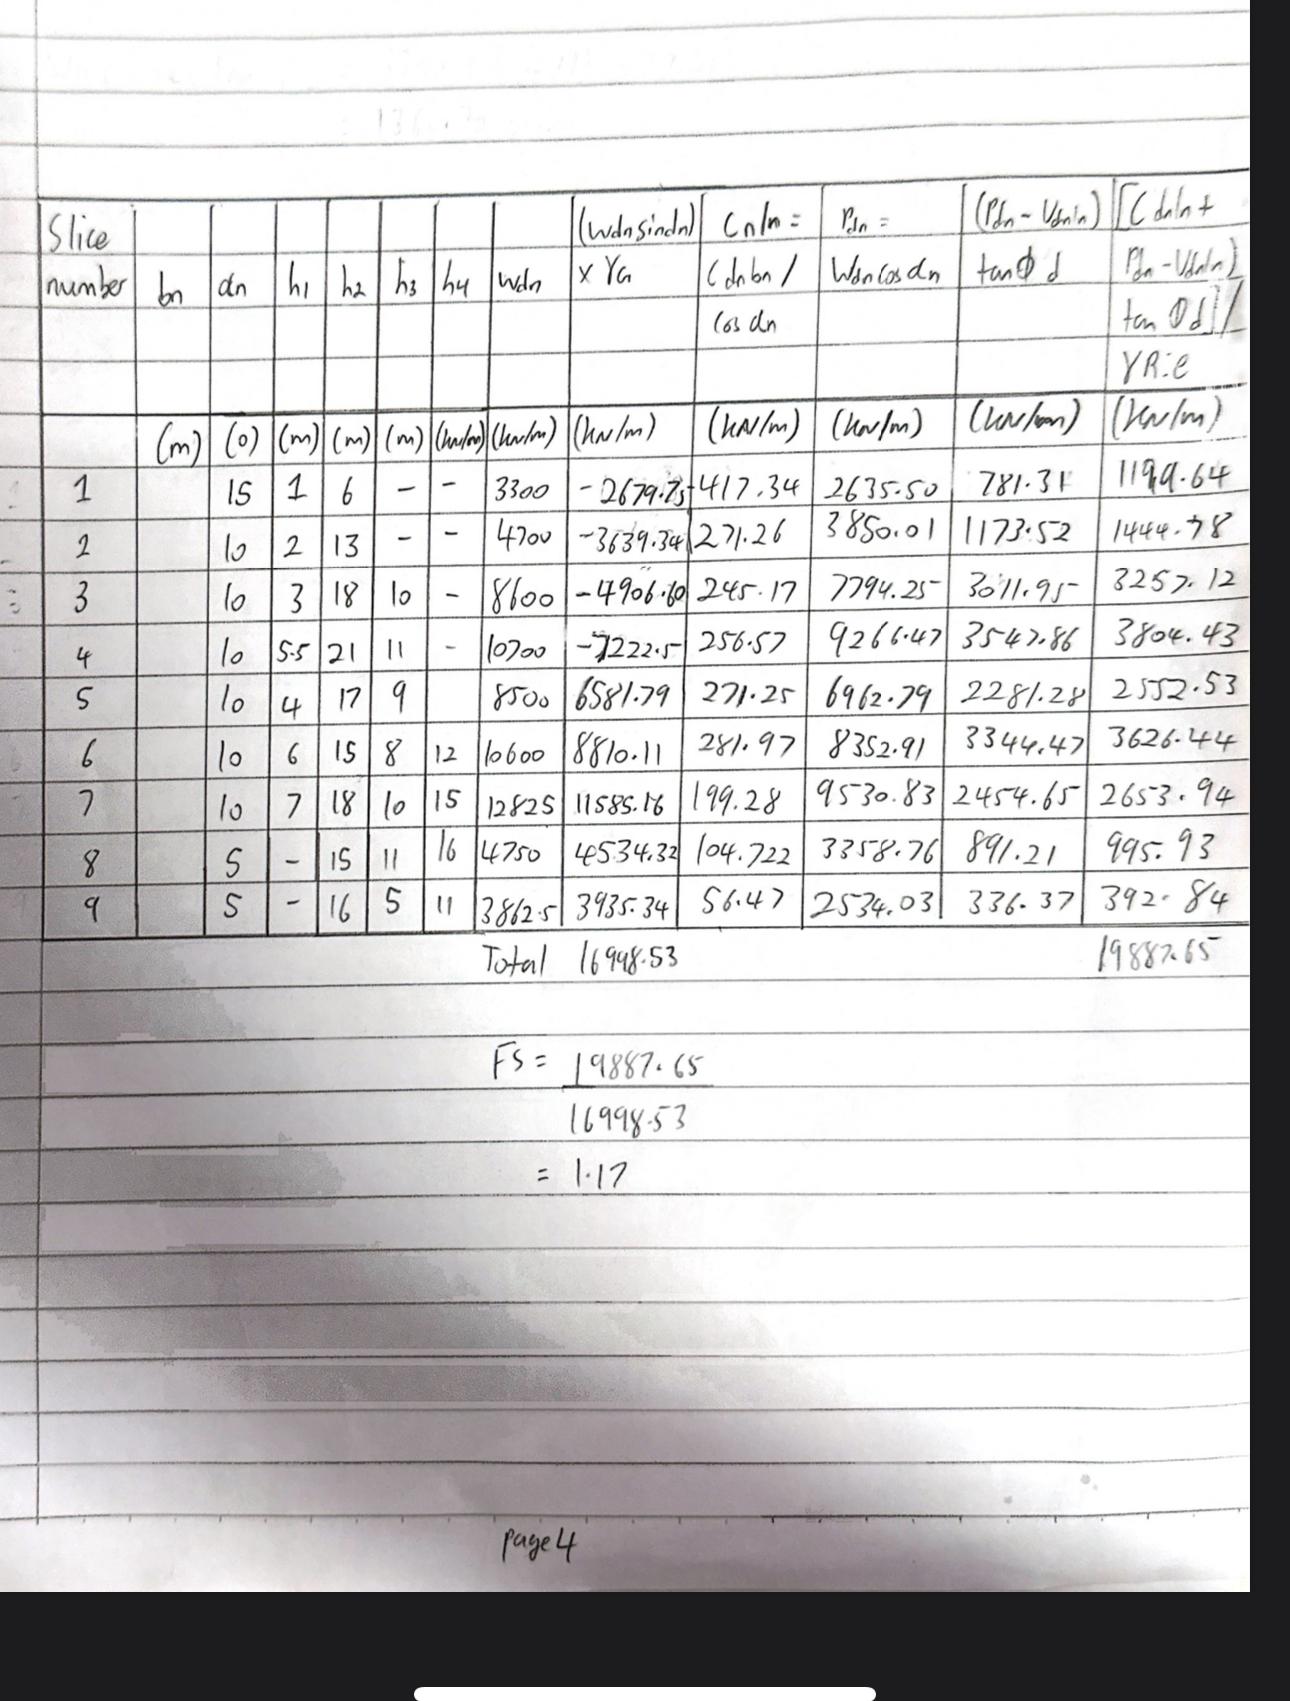 Slice number bn αn h1 h2 h3 h4 Wdn (Wdn sin αn) x YG Cnln = Cdnbn / Cos αn Pdn = Wdn cos αn (Pdn - Udnln) tanΦd [Cdnln + Pdn - Udnln) tan Φd] / γR:e
(m) (o) (m) (m) (m) (kN/m) (kN/m) (kN/m) (kN/m) (kN/m) (kN/m)
1 15 1 6 - - 3300 -2679.75 417.34 2635.50 781.31 1199.64
2 10 2 13 - - 4700 -3639.34 271.26 3850.01 1173.52 1444.78
3 10 3 18 10 - 8600 245.17 7794.25 3011.95 3257.12
4 10 5.5 21 11 - 10700 -7222.5 256.57 9266.47 3547.86 3804.43
5 10 4 17 9 8500 6581.79 271.25 6962.79 2281.28 2552.53
6 10 6 15 8 12 10600 8810.11 281.97 8352.91 3344.47 3626.44
7 10 7 18 10 15 12825 11585.16 199.28 9530.83 2454.65 2653.94
8 5 - 15 11 16 4750 4534.32 104.722 3358.76 891.21 995.93
9 5 - 16 5 11 3862.5 3935.34 56.47 2534.03 336.37 392.84
Total 16998.53 19887.65
FS = 19887.65
16998.53
= 1.17
page 4